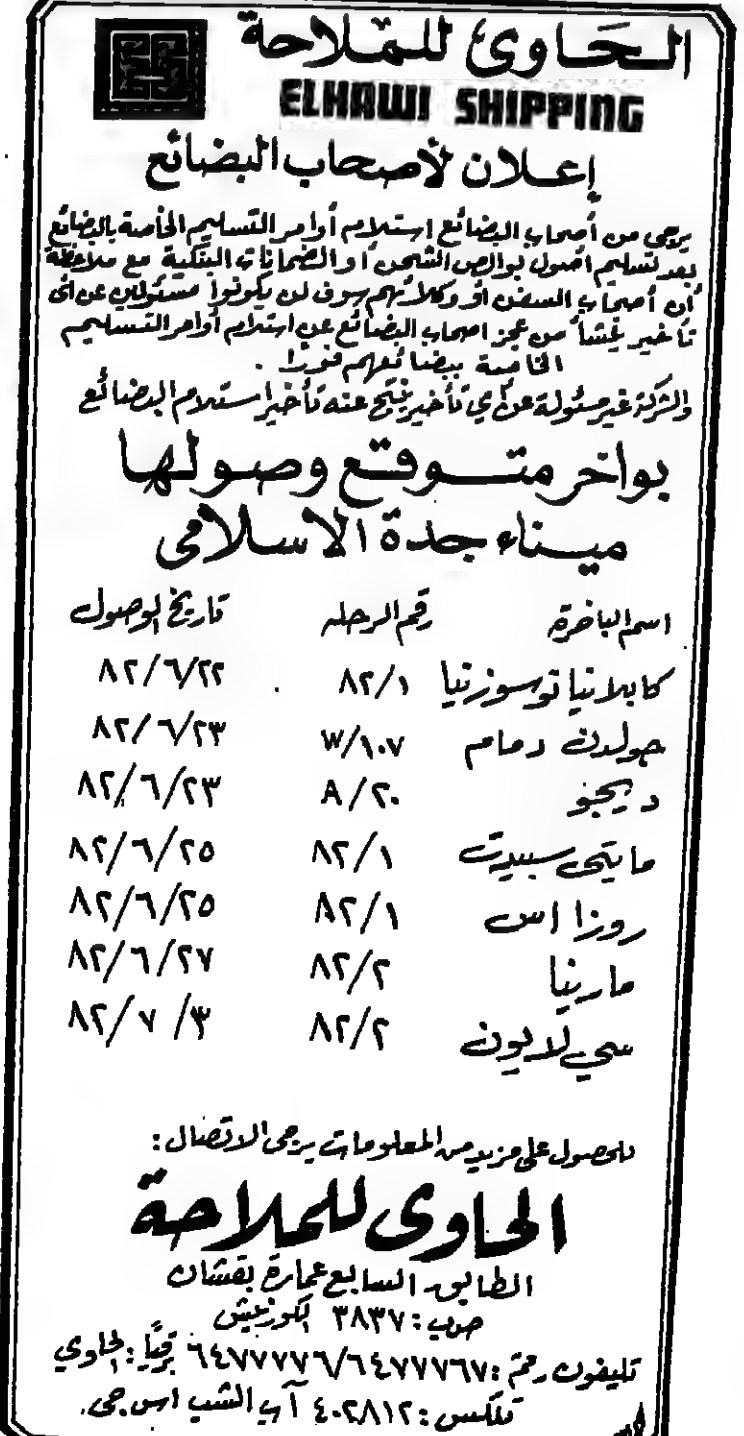 الحاوى للملاحة
ELHAWI SHIPPING
إعلان لأصحاب البضائع
يرجى من أصحاب البضائع استلام أوامر التسليم الخاصة بالبضائع
بعد تسليم أصول بوالص الشحن أو الضمانات البنكية مع ملاحظة
أن أصحاب السفن أو وكلائهم سوف لن يكونوا مسئولين عن أى
تأخير ينشأ من عجز اصحاب البضائع عن استلام أوامر التسليم
الخاصة ببضائعهم فورًا .
والشركة غير مسئولة عن أي تأخير ينتج عنه تأخير استلام البضائع
بواخر متوقع وصولها
ميناء جدة الاسلامى
اسم الباخرة رقم الرحله تاريخ الوصول
كابلانيا توسوزنيا ٨٢/١ ٨٢/٦/٢٢
جولدن دمام W/١٠٧ ٨٢/٦/٢٣
ديجو A/٢٠ ٨٢/٦/٢٣
مايتى سبيرت ٨٢/١ ٨٢/٦/٢٥
روزا اس ٨٢/١ ٨٢/٦/٢٥
مارينا ٨٢/٢ ٨٢/٦/٢٧
سي لايون ٨٢/٢ ٨٢/٧/٣
للحصول على مزيد من المعلومات يرجى الاتصال :
الحاوى للملاحة
الطابق السابع عمارة بقشان
ص.ب : ٣٨٣٧ الكورنيش
تليفون رقم : ٦٤٧٧٧٦٧/٦٤٧٧٧٧٦ برقيًا : الحاوي
تلكس : ٤٠٢٨١٢ آب الشب اس جى.